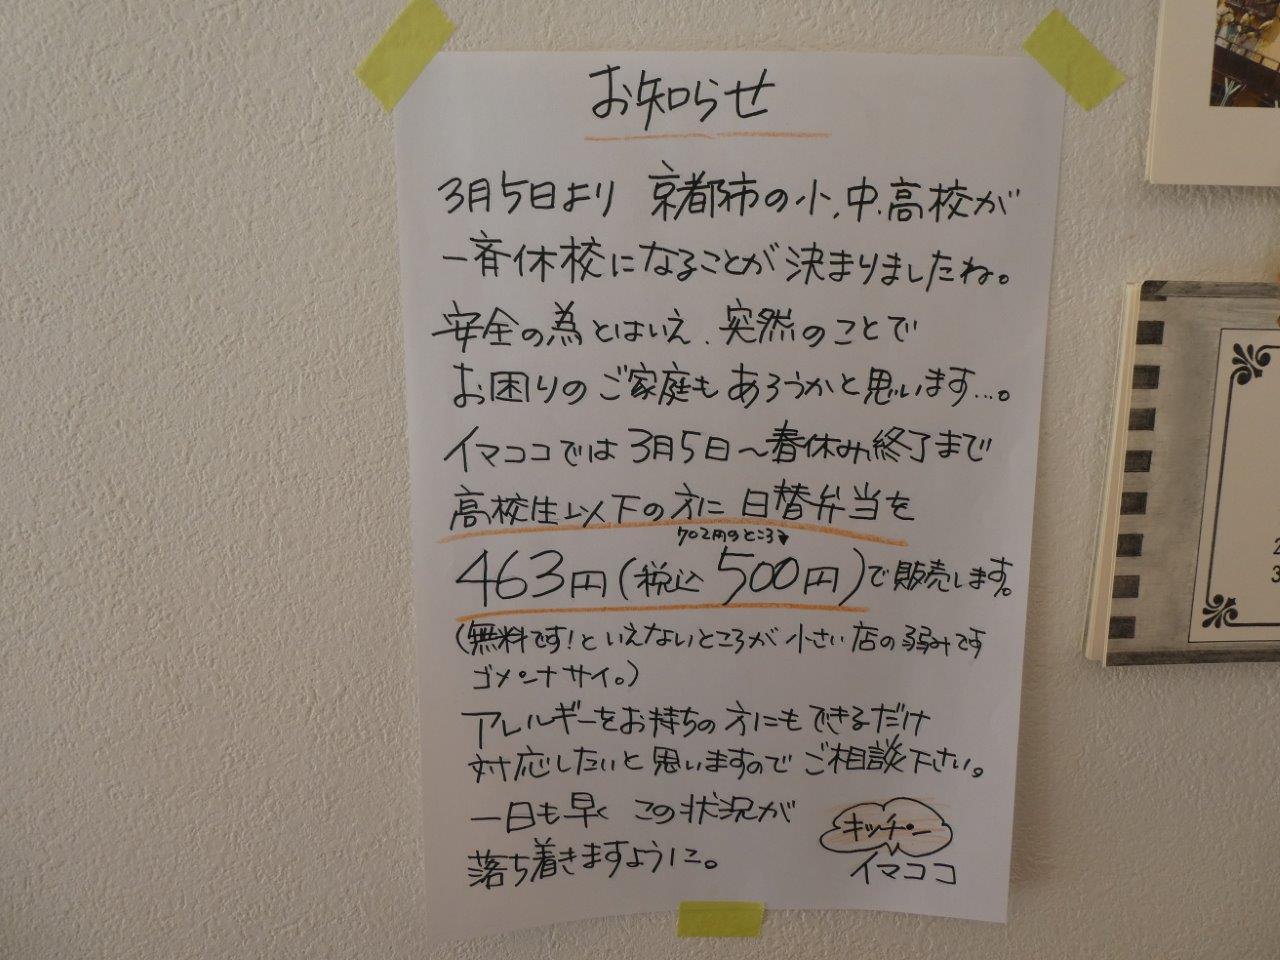 お知らせ
3月5日より 京都市の小、中、高校が
一斉休校になることが決まりましたね。
安全の為とはいえ、突然のことで
お困りのご家庭もあろうかと思います…。
イマココでは3月5日～春休み終了まで
高校生以下の方に日替弁当を
702円のところ
463円(税込500円)で販売します。
(無料です!といえないところが小さい店の弱みです
ゴメンナサイ。)
アレルギーをお持ちの方にもできるだけ
対応したいと思いますのでご相談下さい。
一日も早く この状況が
落ち着きますように。
キッチン
イマココ
2
3